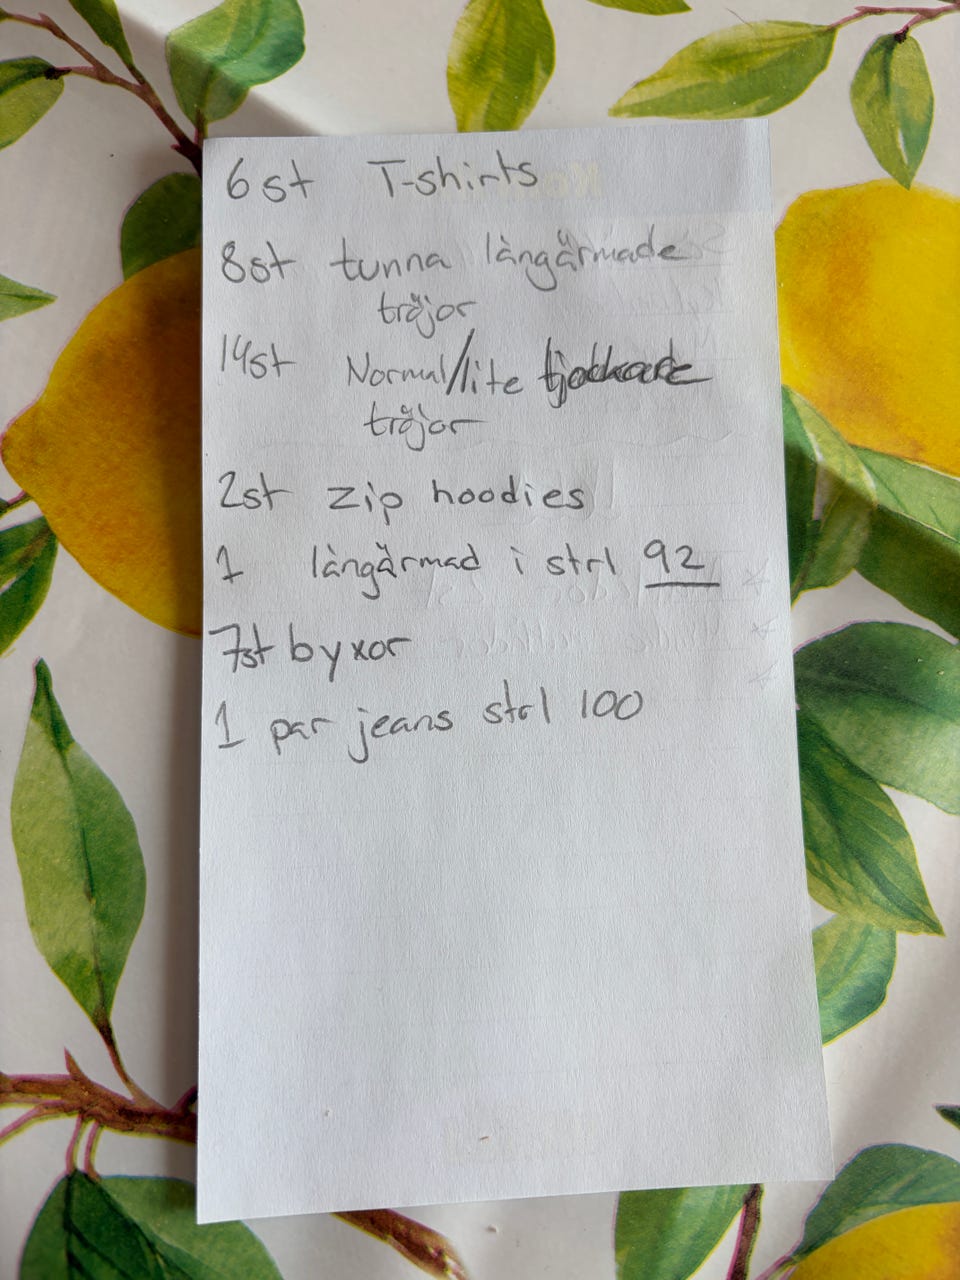 6st T-shirts
8st tunna långärmade
tröjor
14st Normal/lite tjockare
tröjor
2st zip hoodies
1 långärmad i strl 92
7st byxor
1 par jeans strl 100